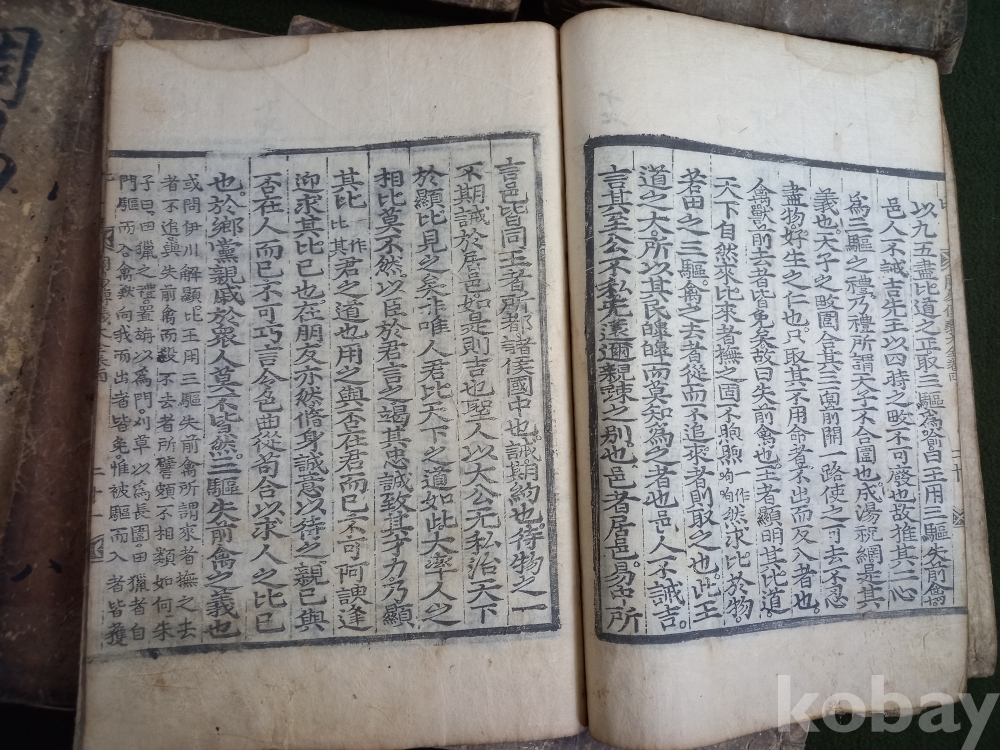 以九五盡比道之正取三驅爲喩曰王用三驅失前禽
邑人不誡吉先王以四時之畋不可廢也故推其仁心
爲三驅之禮乃禮所謂天子不合圍也成湯祝網是其
義也天子之畋圍合其三面前開一路使之可去不忍
盡物好生之仁也只取其不用命者不出而反入者也
禽獸前去者皆免矣故曰失前禽也王者顯明其比道
天下自然來比來者撫之固不煦煦一作呴呴然求比於物
若田之三驅禽之去者從而不追來者則取之也此王
道之大所以其民皥皥而莫知爲之者也邑人不誡吉
言其至公不私无遠邇親疎之別也邑者居邑易中所
言邑皆同王者所都諸侯國中也誡期約也待物之一
不期誡於居邑如是則吉也聖人以大公无私治天下
於顯比見之矣非唯人君比天下之道如此大率人之
相比莫不然以臣於君言之竭其忠誠致其才力乃顯
其比比一作其君之道也用之與否在君而已不可阿諛逢
迎求其比己也在朋友亦然脩身誠意以待之親己與
否在人而已不可巧言令色曲從苟合以求人之比己
也於鄕黨親戚於衆人莫不皆然三驅失前禽之義也
或問伊川解顯比王用三驅失前禽所謂來者撫之去
者不追與失前禽而殺不去者所譬頗不相類如何朱
子曰田獵之禮置旃以爲門刈草以爲長圍田獵者自
門驅而入禽獸向我而出者皆免惟被驅而入者皆獲
二十一
周
kobay